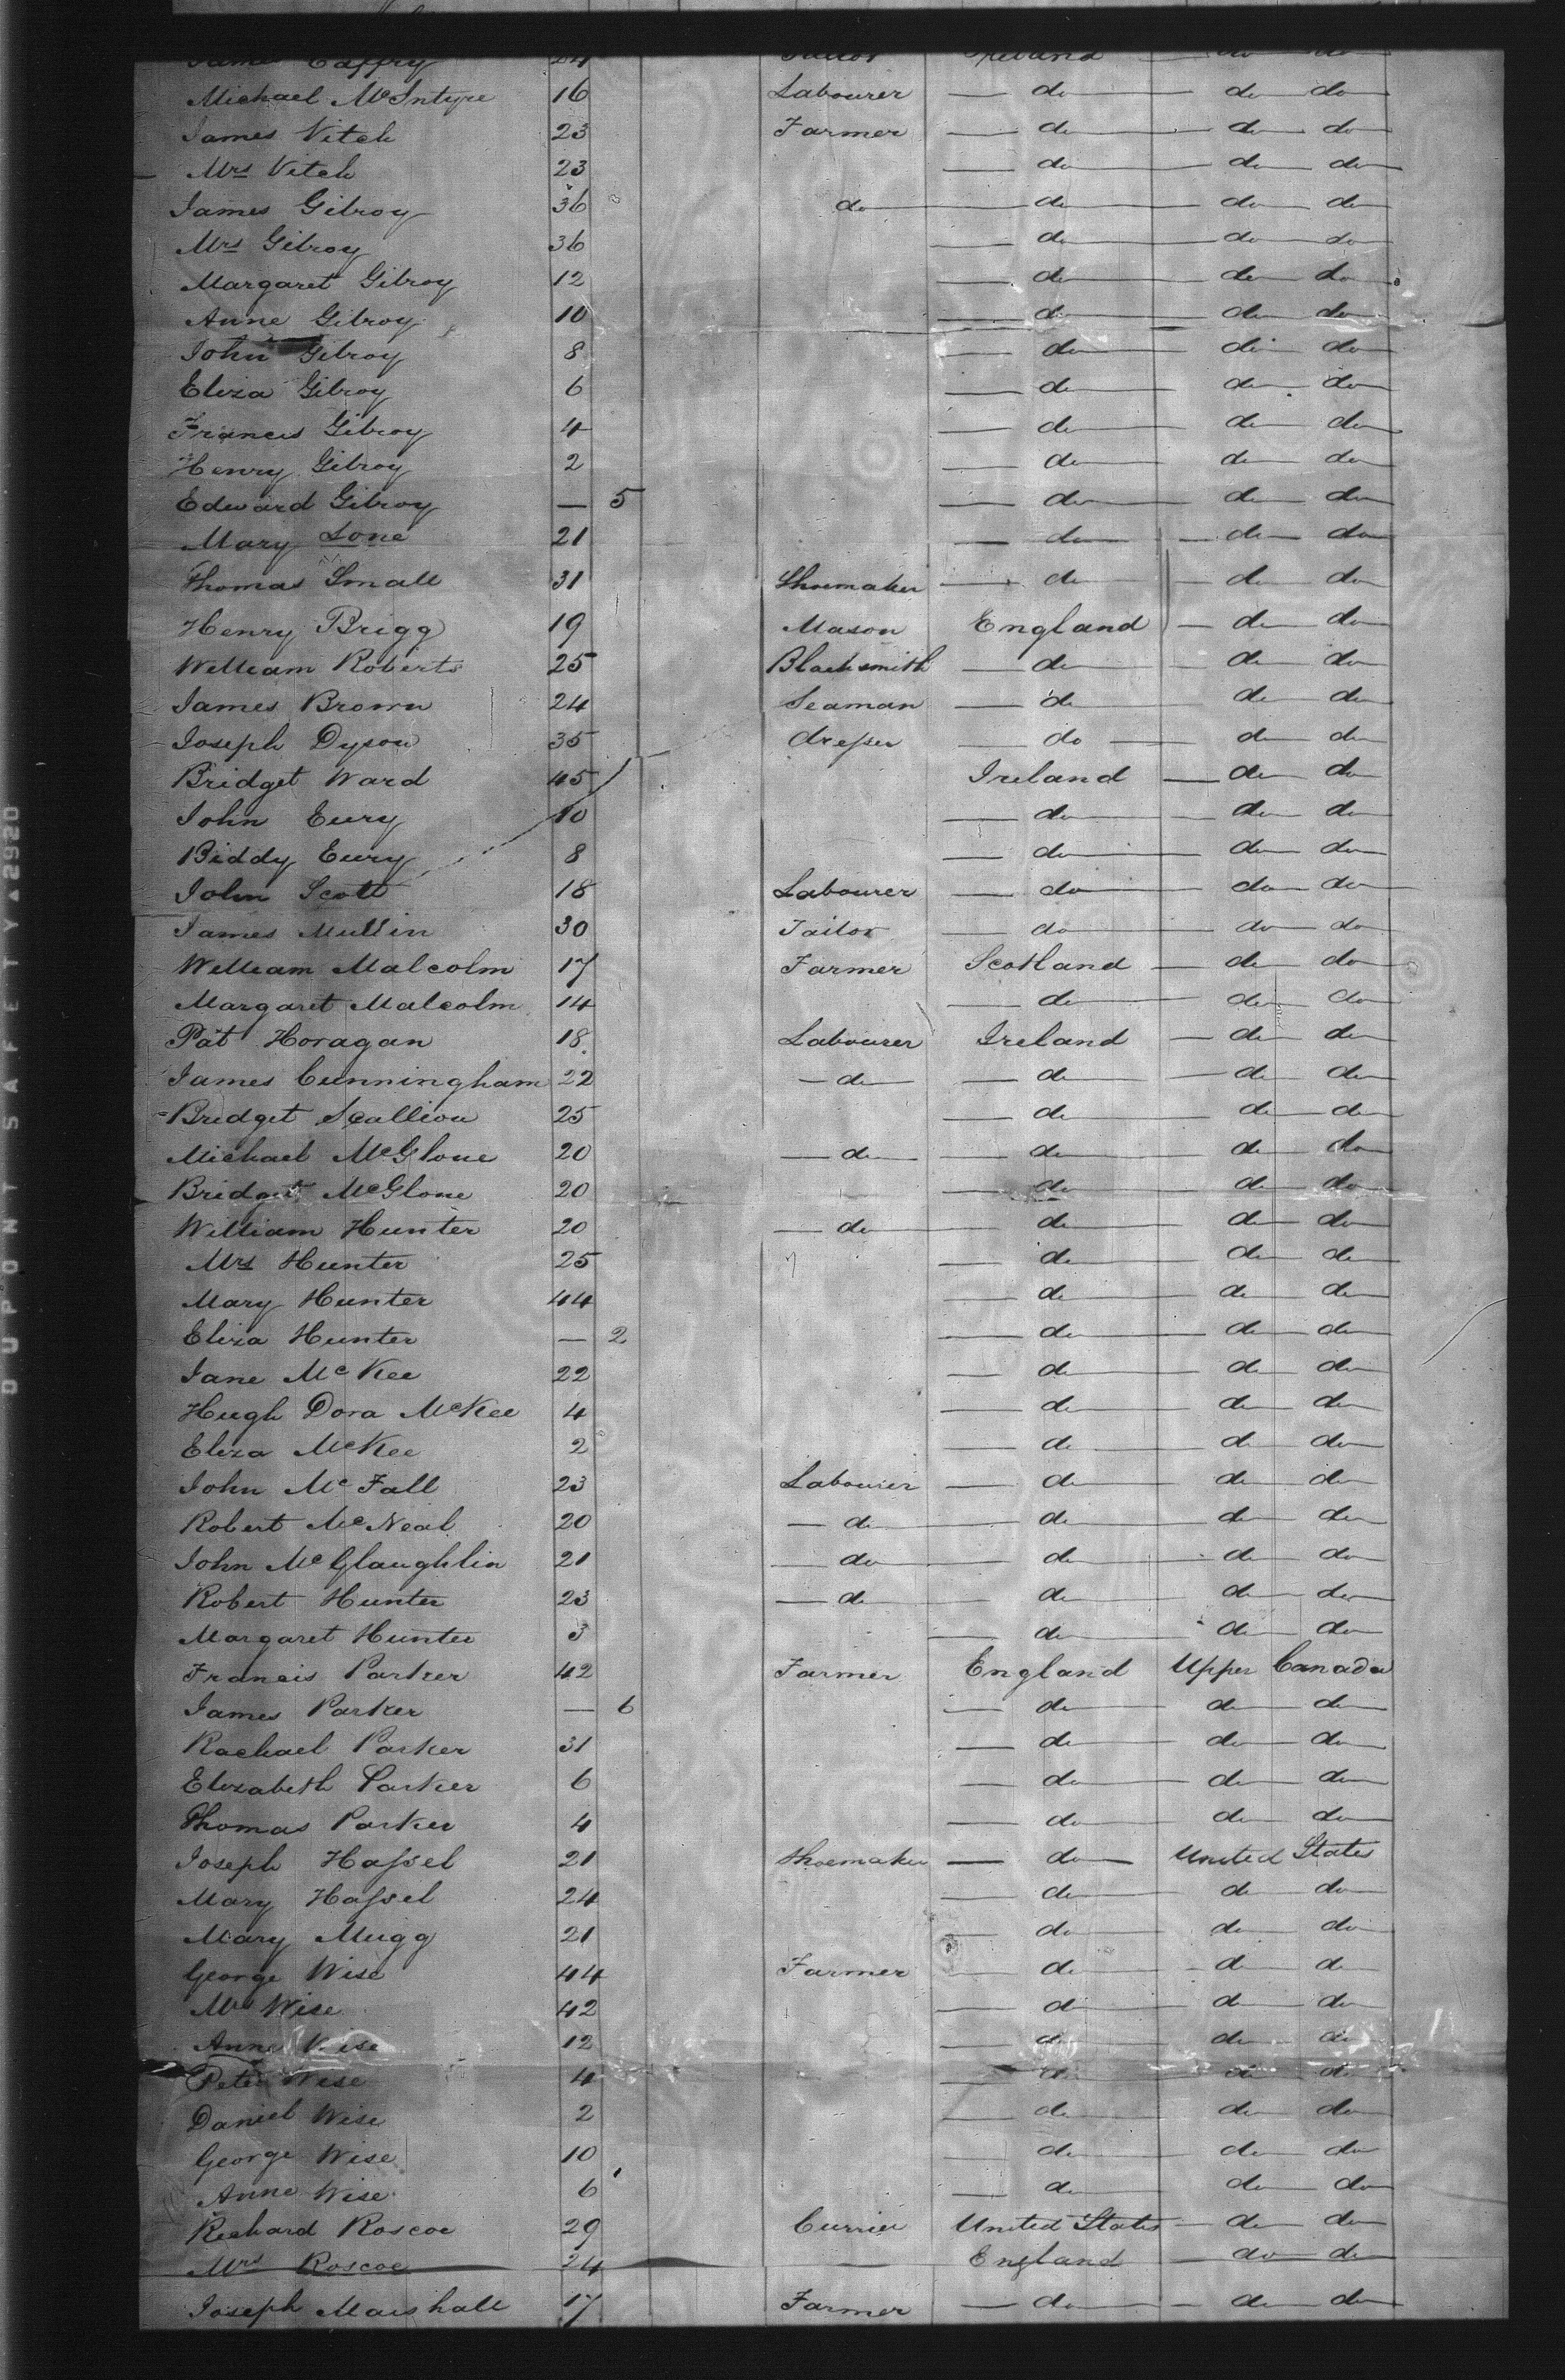 James Caffry 24 Tailor Ireland do do
Michael McIntyre 16 Labourer do do do
James Vitch 23 Farmer do do do
Mrs Vitch 23 do do do
James Gilroy 36 do do do do
Mrs Gilroy 36 do do do
Margaret Gilroy 12 do do do
Anne Gilroy 10 do do do
John Gilroy 8 do do do
Eliza Gilroy 6 do do do
Francis Gilroy 4 do do do
Henry Gilroy 2 do do do
Edward Gilroy — 5 do do do
Mary Lone 21 do do do
Thomas Small 31 Shoemaker do do do
Henry Brigg 19 Mason England do do
William Roberts 25 Blacksmith do do do
James Brown 24 Seaman do do do
Joseph Dyson 35 dresser do do do
Bridget Ward 45 Ireland do do
John Eury 10 do do do
Biddy Eury 8 do do do
John Scott 18 Labourer do do do
James Mullin 30 Tailor do do do
William Malcolm 17 Farmer Scotland do do
Margaret Malcolm 14 do do do
Pat Horagan 18 Labourer Ireland do do
James Cunningham 22 do do do do
Bridget Scallion 25 do do do
Michael McGlone 20 do do do do
Bridget McGlone 20 do do do
William Hunter 20 do do do do
Mrs Hunter 25 do do do
Mary Hunter 44 do do do
Eliza Hunter — 2 do do do
Jane McKee 22 do do do
Hugh Dora McKee 4 do do do
Eliza McKee 2 do do do
John McFall 23 Labourer do do do
Robert McNeal 20 do do do do
John McGlaughlin 21 do do do do
Robert Hunter 23 do do do do
Margaret Hunter 3 do do do
Francis Parker 42 Farmer England Upper Canada
James Parker — 6 do do do
Rachael Parker 31 do do do
Elizabeth Parker 6 do do do
Thomas Parker 4 do do do
Joseph Hassel 21 Shoemaker do United States
Mary Hassel 24 do do do
Mary Mugg 21 do do do
George Wise 44 Farmer do do do
Mrs Wise 42 do do do
Anne Wise 12 do do do
Peter Wise 4 do do do
Daniel Wise 2 do do do
George Wise 10 do do do
Anne Wise 6 do do do
Richard Roscoe 29 Currier United States do do
Mrs Roscoe 24 — England do do
Joseph Marshall 17 Farmer do do do
DUPONT SAFETY ▲2920